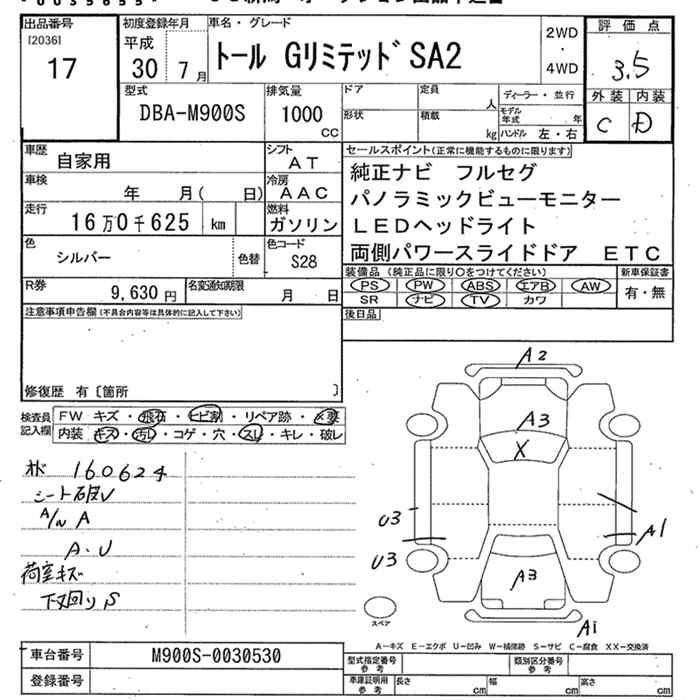 出品番号
[2036]
17
初度登録年月
平成
30年 7月
車名・グレード
トール GリミテッドSA2
2WD
・
4WD
評価点
3.5
外装 内装
C D
型式
DBA-M900S
排気量
1000
CC
ドア
定員
人
ディーラー・並行
形状
積載
kg
モデル年式 年
ハンドル 左・右
車歴
自家用
シフト
AT
車検
年 月( 日)
冷房
AAC
走行
16万0千625 km
燃料
ガソリン
色
シルバー
色替
色コード
S28
R券
9,630円
名変通知期限
月 日
セールスポイント(正常に機能するものに限ります)
純正ナビ フルセグ
パノラミックビューモニター
LEDヘッドライト
両側パワースライドドア ETC
装備品(純正品に限り○をつけてください)
新車保証書
PS PW ABS エアB AW
有・無
SR ナビ TV カワ
後日品
注意事項申告欄(不具合内容等は具体的に記入して下さい)
修復歴 有〔箇所 〕
検査員
記入欄
FW キズ・飛石・ヒビ割・リペア跡・X要
内装 キズ・汚れ・コゲ・穴・スレ・キレ・破レ
160624
A/N A
A・U
荷室キズ
下回りS
A2
A3
X
U3
A1
U3
A3
A1
スペア
A－キズ E－エクボ U－凹み W－補修跡 S－サビ C－腐食 XX－交換済
車台番号
M900S-0030530
登録番号
型式指定番号
参考
類別区分番号
参考
車庫証明用
参考
長さ cm
幅 cm
高さ cm